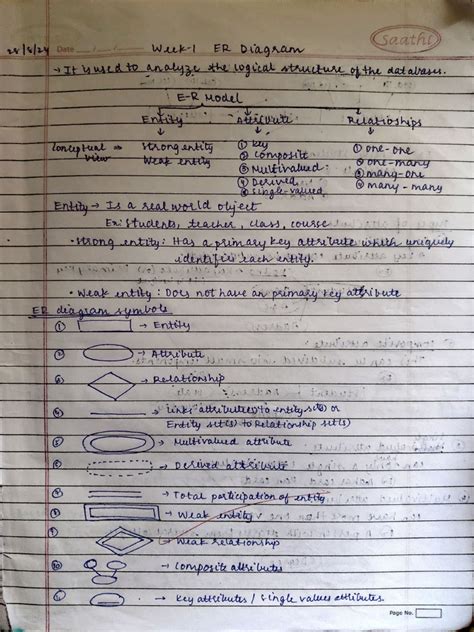 Saathi
28/8/24 Date __/__/__ Week-1 ER Diagram
→ It is used to analyze the logical structure of the databases.
E-R Model
Entity Attribute Relatioships
Conceptual ⇒ Strong entity ① Key ① one-one
view Weak entity ② Composite ② one-many
③ Multivalued ③ many-one
④ Derived ④ many-many
⑤ Single-valued
Entity → Is a real world object
Ex: Students, teacher, class, course
• Strong entity: Has a primary key attribute which uniquely
identifies each entity.
• Weak entity: Does not have an primary key attribute
ER diagram symbols
① → Entity
② → Attribute
③ → Relationship
④ → Links attribute(s) to entity set(s) or
Entity set(s) to Relationship set(s)
⑤ → Multivalued attribute
⑥ → Derived attribute
⑦ → Total participation of entity
⑧ → Weak entity
⑨ → Weak relationship
⑩ → Composite attributes
→ Key attributes / Single values attributes.
Page No.